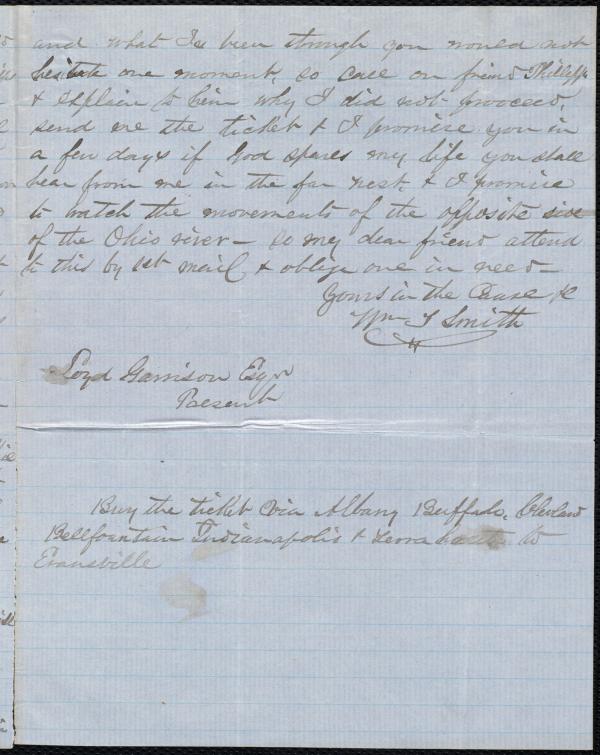 and what I've been through you would not
hesitate one moment, so call on friend Phillips
& explain to him why I did not proceed,
send me the ticket & I promise you in
a few days if God spares my life you shall
hear from me in the far west, & I promise
to watch the movements of the opposite side
of the Ohio river — so my dear friend attend
to this by 1st mail & oblige one in need —
Yours in the Cause &c
Wm S Smith
Loyd Garrison Esqr
Present
Buy the ticket via Albany Buffalo, Clevland
Bellfountain Indianapolis & Terra haute to
Evansville